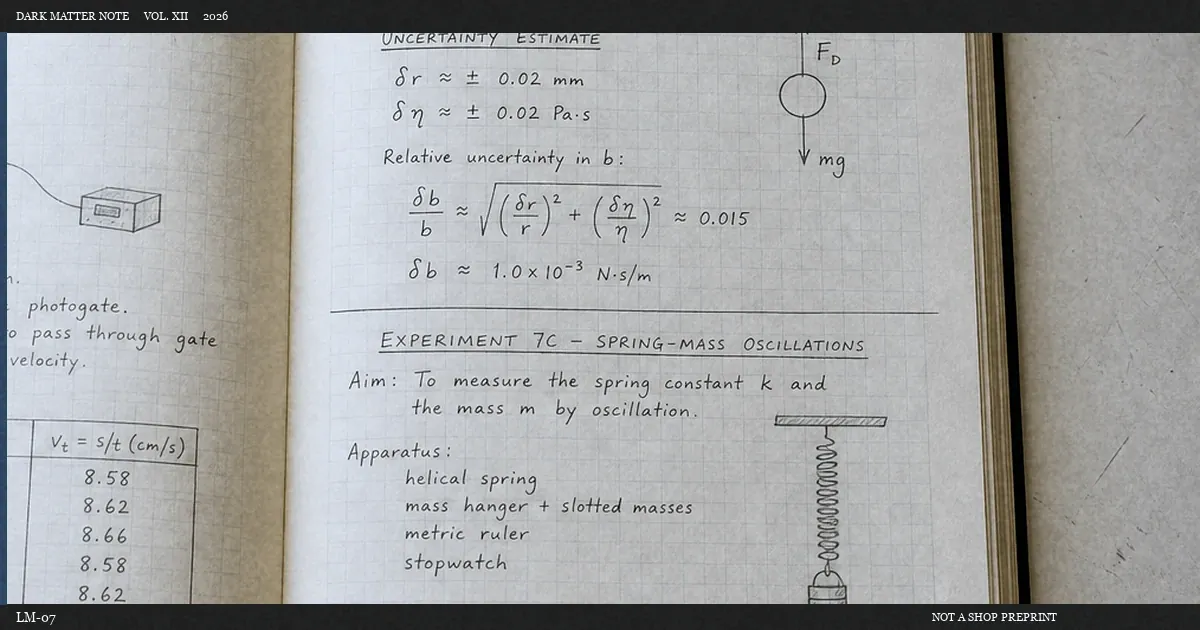 DARK MATTER NOTE VOL. XII 2026
n.
photogate.
o pass through gate
velocity.
vt = s/t (cm/s)
8.58
8.62
8.66
8.58
8.62
UNCERTAINTY ESTIMATE
δr ≈ ± 0.02 mm
δη ≈ ± 0.02 Pa·s
Relative uncertainty in b:
δb/b ≈ √((δr/r)² + (δη/η)²) ≈ 0.015
δb ≈ 1.0 × 10⁻³ N·s/m
F_D
mg
EXPERIMENT 7C – SPRING-MASS OSCILLATIONS
Aim: To measure the spring constant k and
the mass m by oscillation.
Apparatus:
helical spring
mass hanger + slotted masses
metric ruler
stopwatch
LM-07 NOT A SHOP PREPRINT